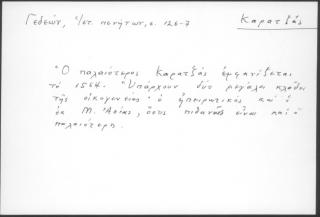 Γεδεών, Ἀστ. πενήτων, σ. 126-7
Καρατζάς
Ὁ παλαιότερος Καρατζάς ἐμφανίζεται
τό 1564. Ὑπάρχουν δύο μεγάλοι κλάδοι
τῆς οἰκογενείας· ὁ ἠπειρωτικός καί ὁ
ἐκ Μ. Ἀσίας, ὅστις πιθανῶς εἶναι καί ὁ
παλαιότερη.